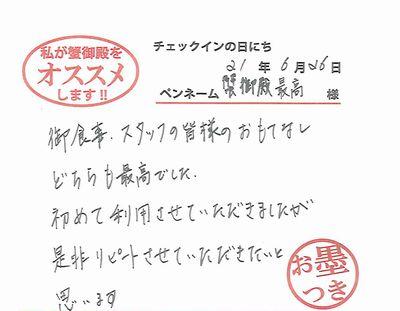 私が蟹御殿を
オススメ
します!!
チェックインの日にち
21年6月26日
ペンネーム 蟹御殿最高 様
御食事、スタッフの皆様のおもてなし
どちらも最高でした。
初めて利用させていただきましたが
是非リピートさせていただきたいと
思います
お墨
つき